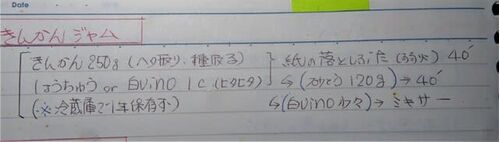 Date
きんかん ジャム
きんかん 250g (ヘタ取り、種取る) 紙の落としぶた (弱火) 40´
しょうちゅう or 白vino 1c (ヒタヒタ) ↳ ( 120g) → 40´
(※ 冷蔵庫で1年保存可) ↳ (白vino 少々) → ミキサー